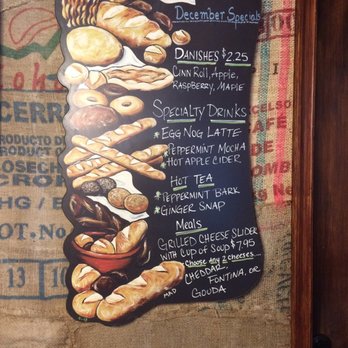 December Specials
DANISHES $2.25
CINN ROLL, APPLE,
RASPBERRY, MAPLE
SPECIALTY DRINKS
*EGG NOG LATTE
*PEPPERMINT MOCHA
*HOT APPLE CIDER
HOT TEA
*PEPPERMINT BARK
*GINGER SNAP
MEALS
GRILLED CHEESE SLIDER
WITH CUP OF SOUP $7.95
CHOOSE ANY 2 CHEESES...
CHEDDAR,
FONTINA, OR
GOUDA
MAD
100
CERR
PRODUCTO D
PRODUCT O
OSECH
CRO
HG / E
OT. No
13
10
I
CELSO
CAFÉ
DE
OMB
No